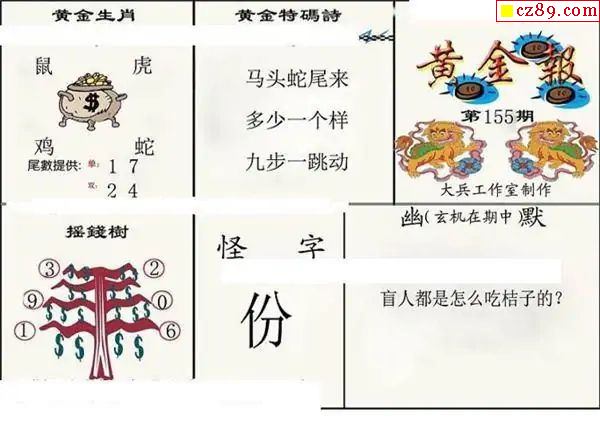 cz89.com
黄金生肖
鼠 虎
$
鸡 蛇
尾數提供: 单: 1 7
双: 2 4
黄金特碼詩
马头蛇尾来
多少一个样
九步一跳动
黄金報
第155期
大兵工作室制作
摇錢樹
③ ②
⑨ ⓪
① ⑥
$ $ $ $
怪 字
份
幽(玄机在期中)默
盲人都是怎么吃桔子的?